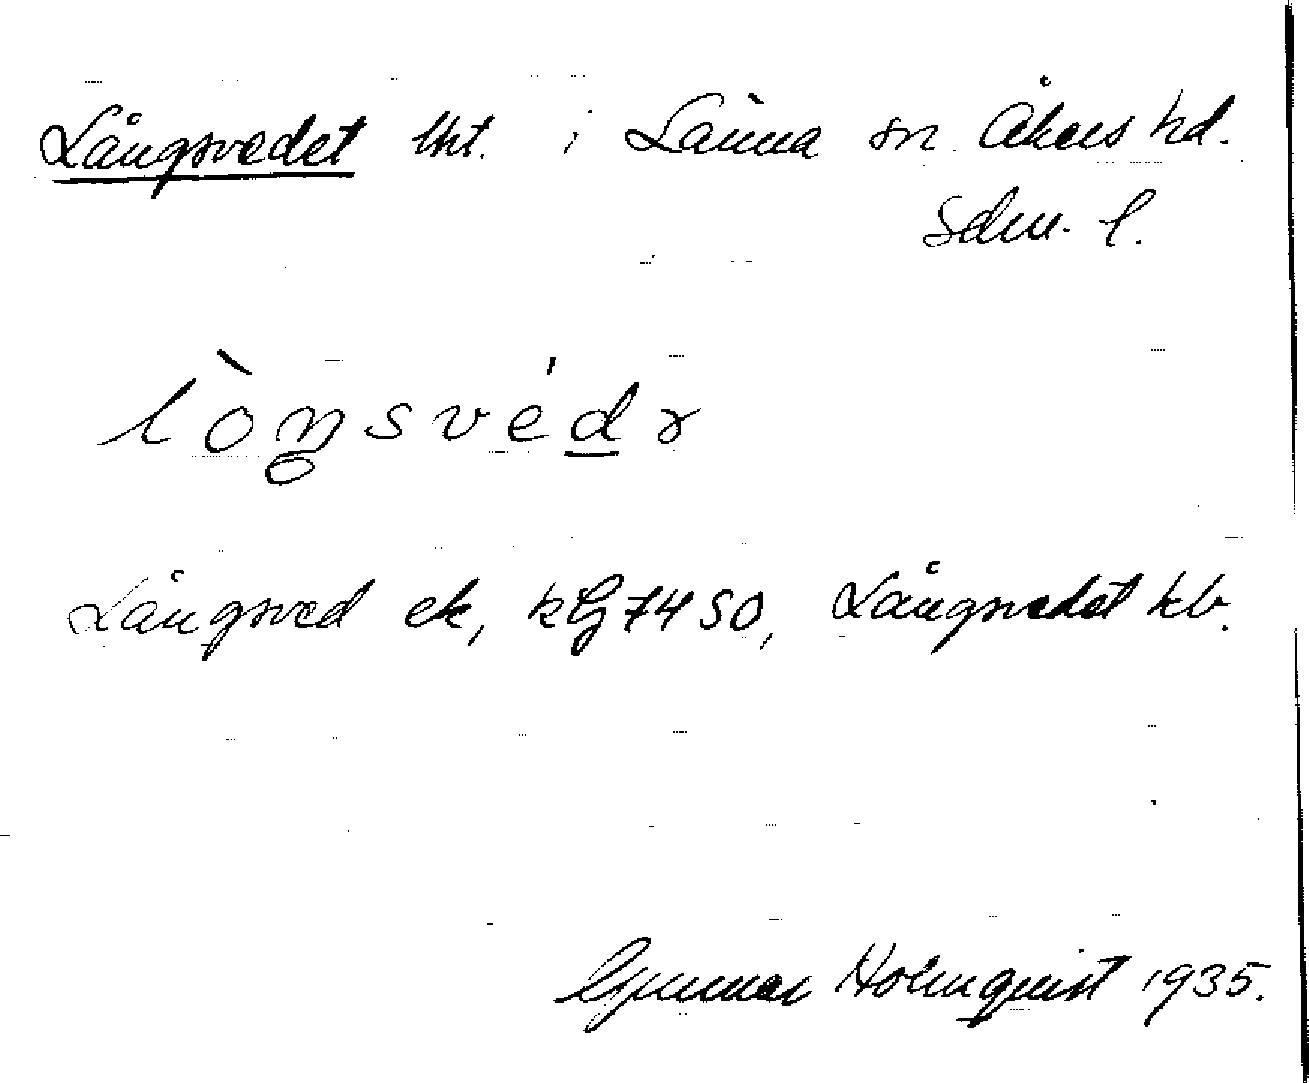 Långsvedet lht. i Länna sn Åkers hd.
Sdm. l.
lòŋsvédɤ
Långsved ek, 74 SO, Långsvedet kb.
Gunnar Holmquist 1935.